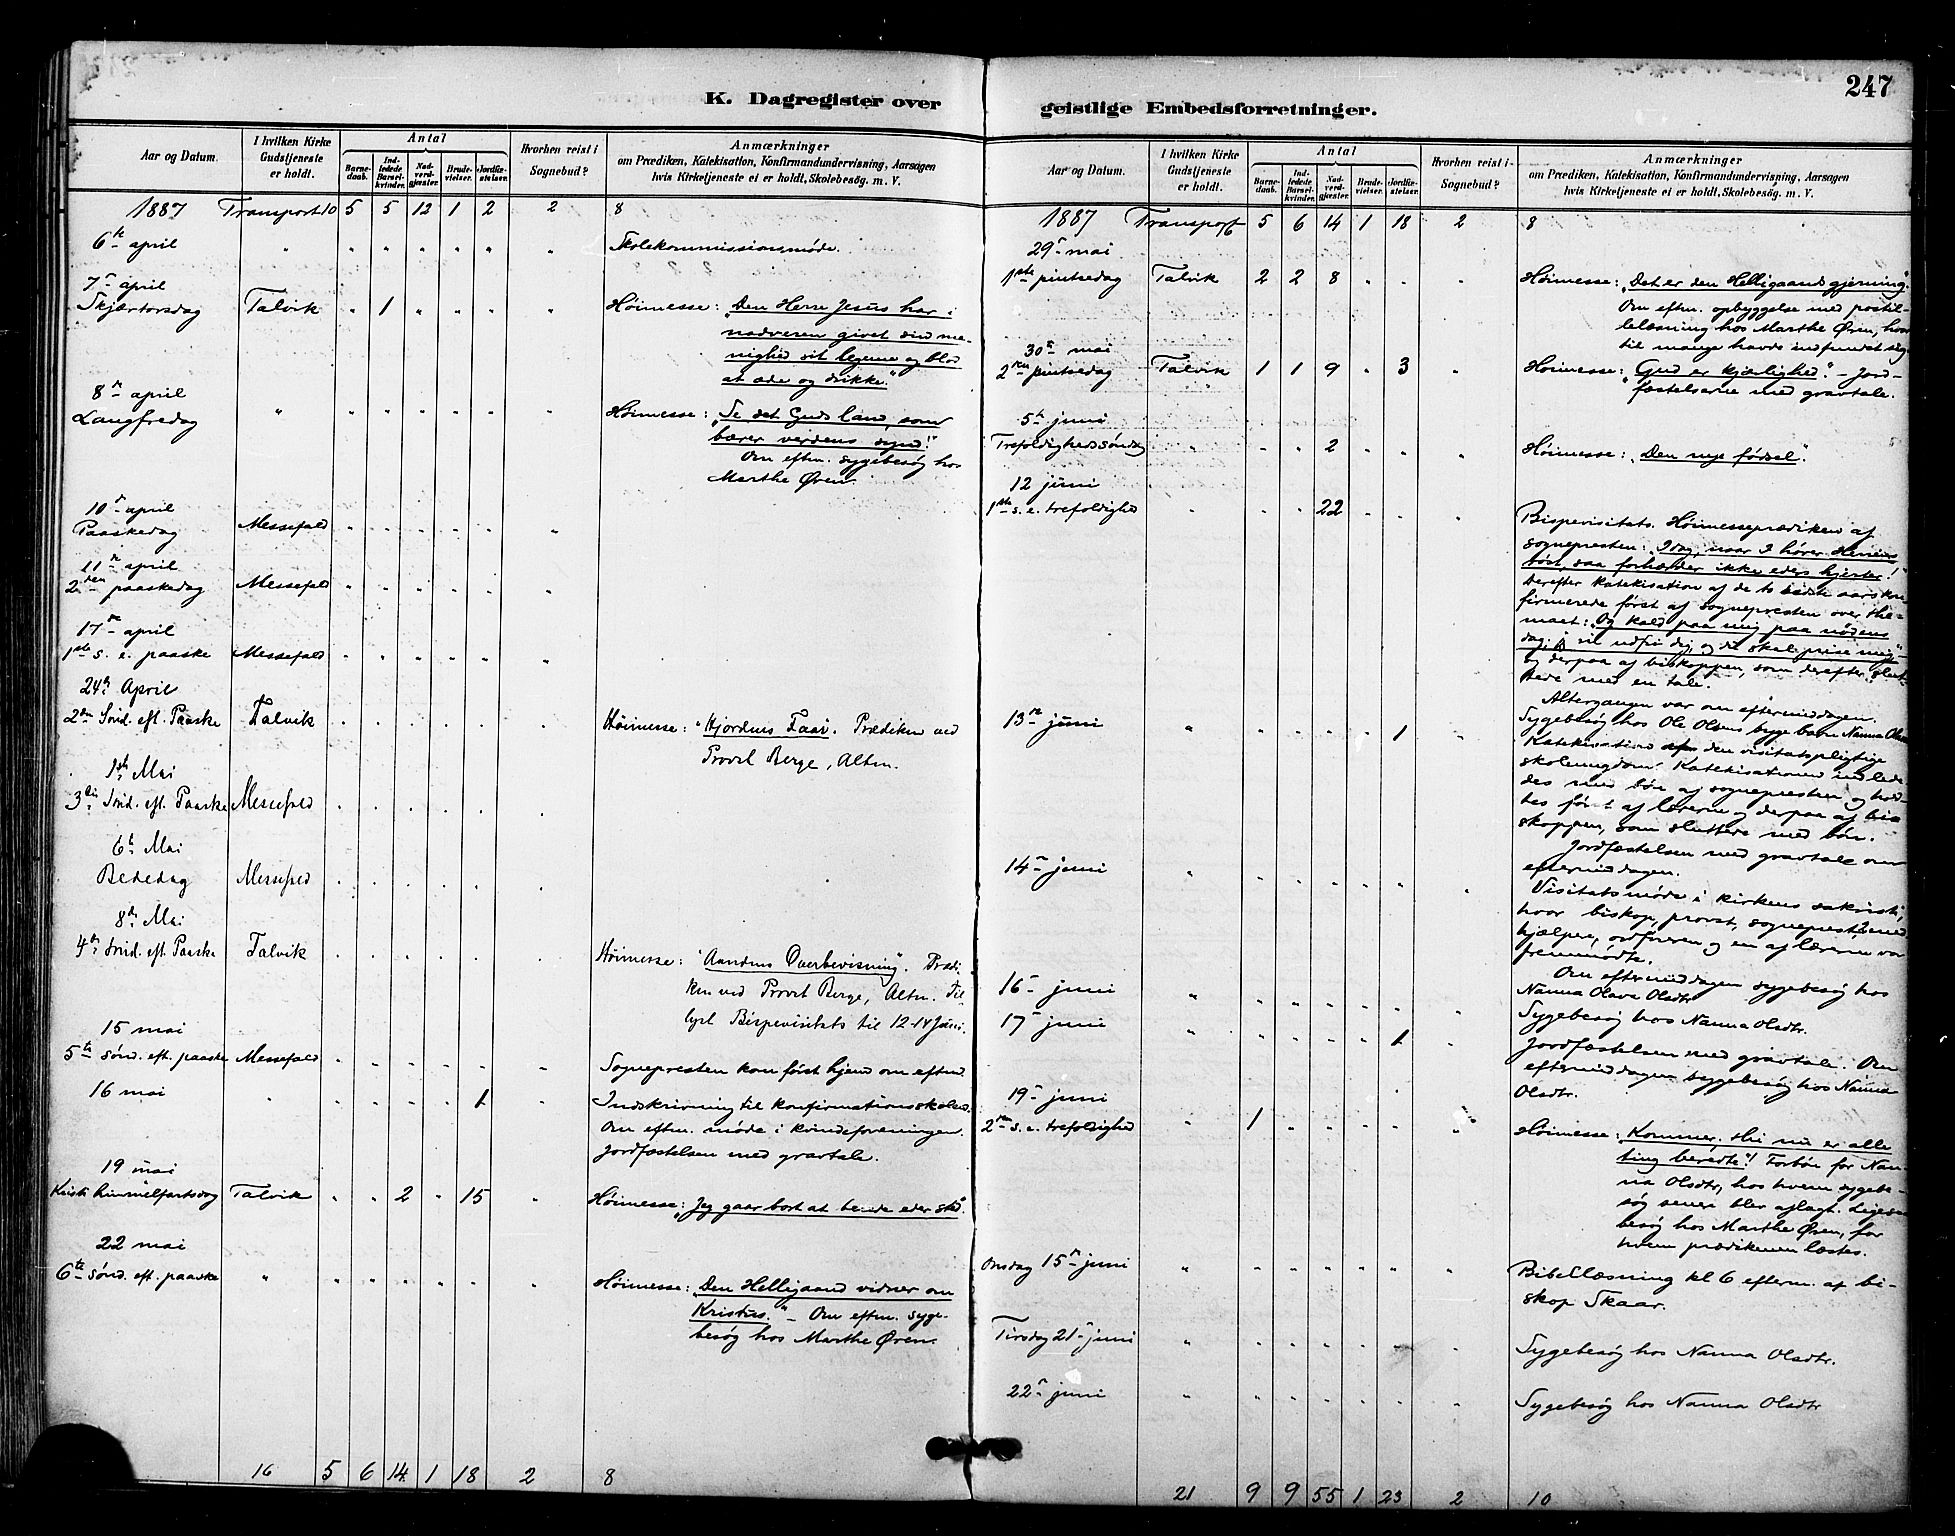 247
K. Dagregister over
geistlige Embedsforretninger.
Aar og Datum.
I hvilken Kirke Gudstjeneste er holdt.
Antal
Barnedaab.
Indledede Barselkvinder.
Nadverdgjester.
Brudevielser.
Jordfæstelser.
Hvorhen reist i Sognebud?
Anmærkninger
om Prædiken, Katekisation, Konfirmandundervisning, Aarsagen
hvis Kirketjeneste ei er holdt, Skolebesøg. m. V.
1887 Transport 10 5 5 12 1 2 2 8
6te april " " " " " " " Skolekommissionsmøde.
7de april
Skjærtorsdag Talvik " 1 " " " " Høimesse: "Den Herre Jesus har i
nadveren givet sin me-
nighed sit legeme og blod
at æde og drikke."
8de april
Langfredag " " " " " " " Høimesse: "Se det Guds lam, som
bærer verdens synd!"
Om eftm. sygebesøg hos
Marthe Øren.
10de april
Paaskedag Messefald
11te april
2den paaskedag Messefald
17de april
1ste s. e. paaske Messefald
24de April
2den Sønd. eft. Paaske Talvik Høimesse: "Hjordens Faar. Prædiken ved
Provst Berge, Alten.
1ste Mai
3die Sønd. eft. Paaske Messefald
6te Mai
Bededag Messefald
8de Mai
4de Sønd. eft. Paaske Talvik Høimesse: "Aandens Overbevisning". Prædi-
ken ved Provst Berge, Altn. Til
lyst Bispevisitats til 12-14 Juni.
15 mai
5te sønd. eft. paaske Messefald Sognepresten kom først hjem om eftmd.
16 mai " 1 Indskrivning til konfirmationsskolen.
Om eftm. møde i kvindeforeningen.
Jordfæstelsen med gravtale.
19 mai
Kristi himmelfartsdag Talvik " " 2 " 15 " Høimesse: "Jeg gaar bort at berede eder sted."
22 mai
6te sønd. eft. paaske " " " " " " " Høimesse: "Den Helligaand vidner om
Kristus." - Om eftm. syge-
besøg hos Marthe Øren.
16 5 6 14 1 18 2 8
Aar og Datum.
I hvilken Kirke Gudstjeneste er holdt.
Antal
Barnedaab.
Indledede Barselkvinder.
Nadverdgjester.
Brudevielser.
Jordfæstelser.
Hvorhen reist i Sognebud?
Anmærkninger
om Prædiken, Katekisation, Konfirmandundervisning, Aarsagen
hvis Kirketjeneste ei er holdt, Skolebesøg. m. V.
1887 Transport 16 5 6 14 1 18 2 8
29de mai
1ste pintsedag Talvik 2 2 8 Høimesse: "Det er den Helligaands gjerning."
Om eftm. opbyggelse med postil-
lelæsning hos Marthe Øren, hvor
til mange havde indfundet sig.
30te mai
2den pintsedag Talvik 1 1 9 " 3 Høimesse: "Gud er kjærlighed". - Jord-
fæstelserne med gravtale.
5te juni
Trefoldighedssøndag " " " 2 Høimesse: "Den nye fødsel".
12 juni
1ste s. e. trefoldighed 22 Bispevisitats. Høimesseprædiken af
sognepresten: "Idag, naar I hører Herrens
røst, saa forhærder ikke eders hjerter!"
Derefter katekisation af de to sidste aars kon
firmerede først af sognepresten over
"Og kald paa mig paa nødens
dag; jeg vil udfri dig, og du skal prise mig"
og derpaa af biskoppen, som derefter slut-
tede med en tale.
Altergangen var om eftermiddagen.
13de juni " 1 Sygebesøg hos Ole Olsens syge barn Nanna Olava
Katekisation af den visitatspligtige
skoleungdom. Katekisationen indlede
des med bøn af sognepresten og hold-
tes først af lærerne og derpaa af bis
koppen, som sluttede med bøn.
Jordfæstelsen med gravtale om
eftermiddagen.
14de juni " Visitatsmøde i kirkens sakristi,
hvor biskop, provst, sogneprest, 2 med
hjælpere, ordføreren og en af lærerne var
fremmødte.
Om eftermiddagen sygebesøg hos
Nanna Olava Olsdtr.
16de juni " Sygebesøg hos Nanna Olsdtr.
17de juni " 1 Jordfæstelsen med gravtale. Om
eftermiddagen sygebesøg hos Nanna
Olsdtr.
19de juni
2den s. e. trefoldighed " 1 Høimesse: "Kommer, thi nu er alle
ting beredte"! Forbøn for Nan-
na Olsdtr., hos hvem sygebe-
søg senere blev aflagt. Ligesaa
besøg hos Marthe Øren, for
hvem prædikenen læstes.
Onsdag 15de juni " Bibellæsning kl 6 efterm. af bi-
skop Skaar.
Tirsdag 21de juni " Sygebesøg hos Nanna Olsdtr.
22de juni " Sygebesøg hos Nanna Olsdtr
21 9 9 55 1 23 2 10